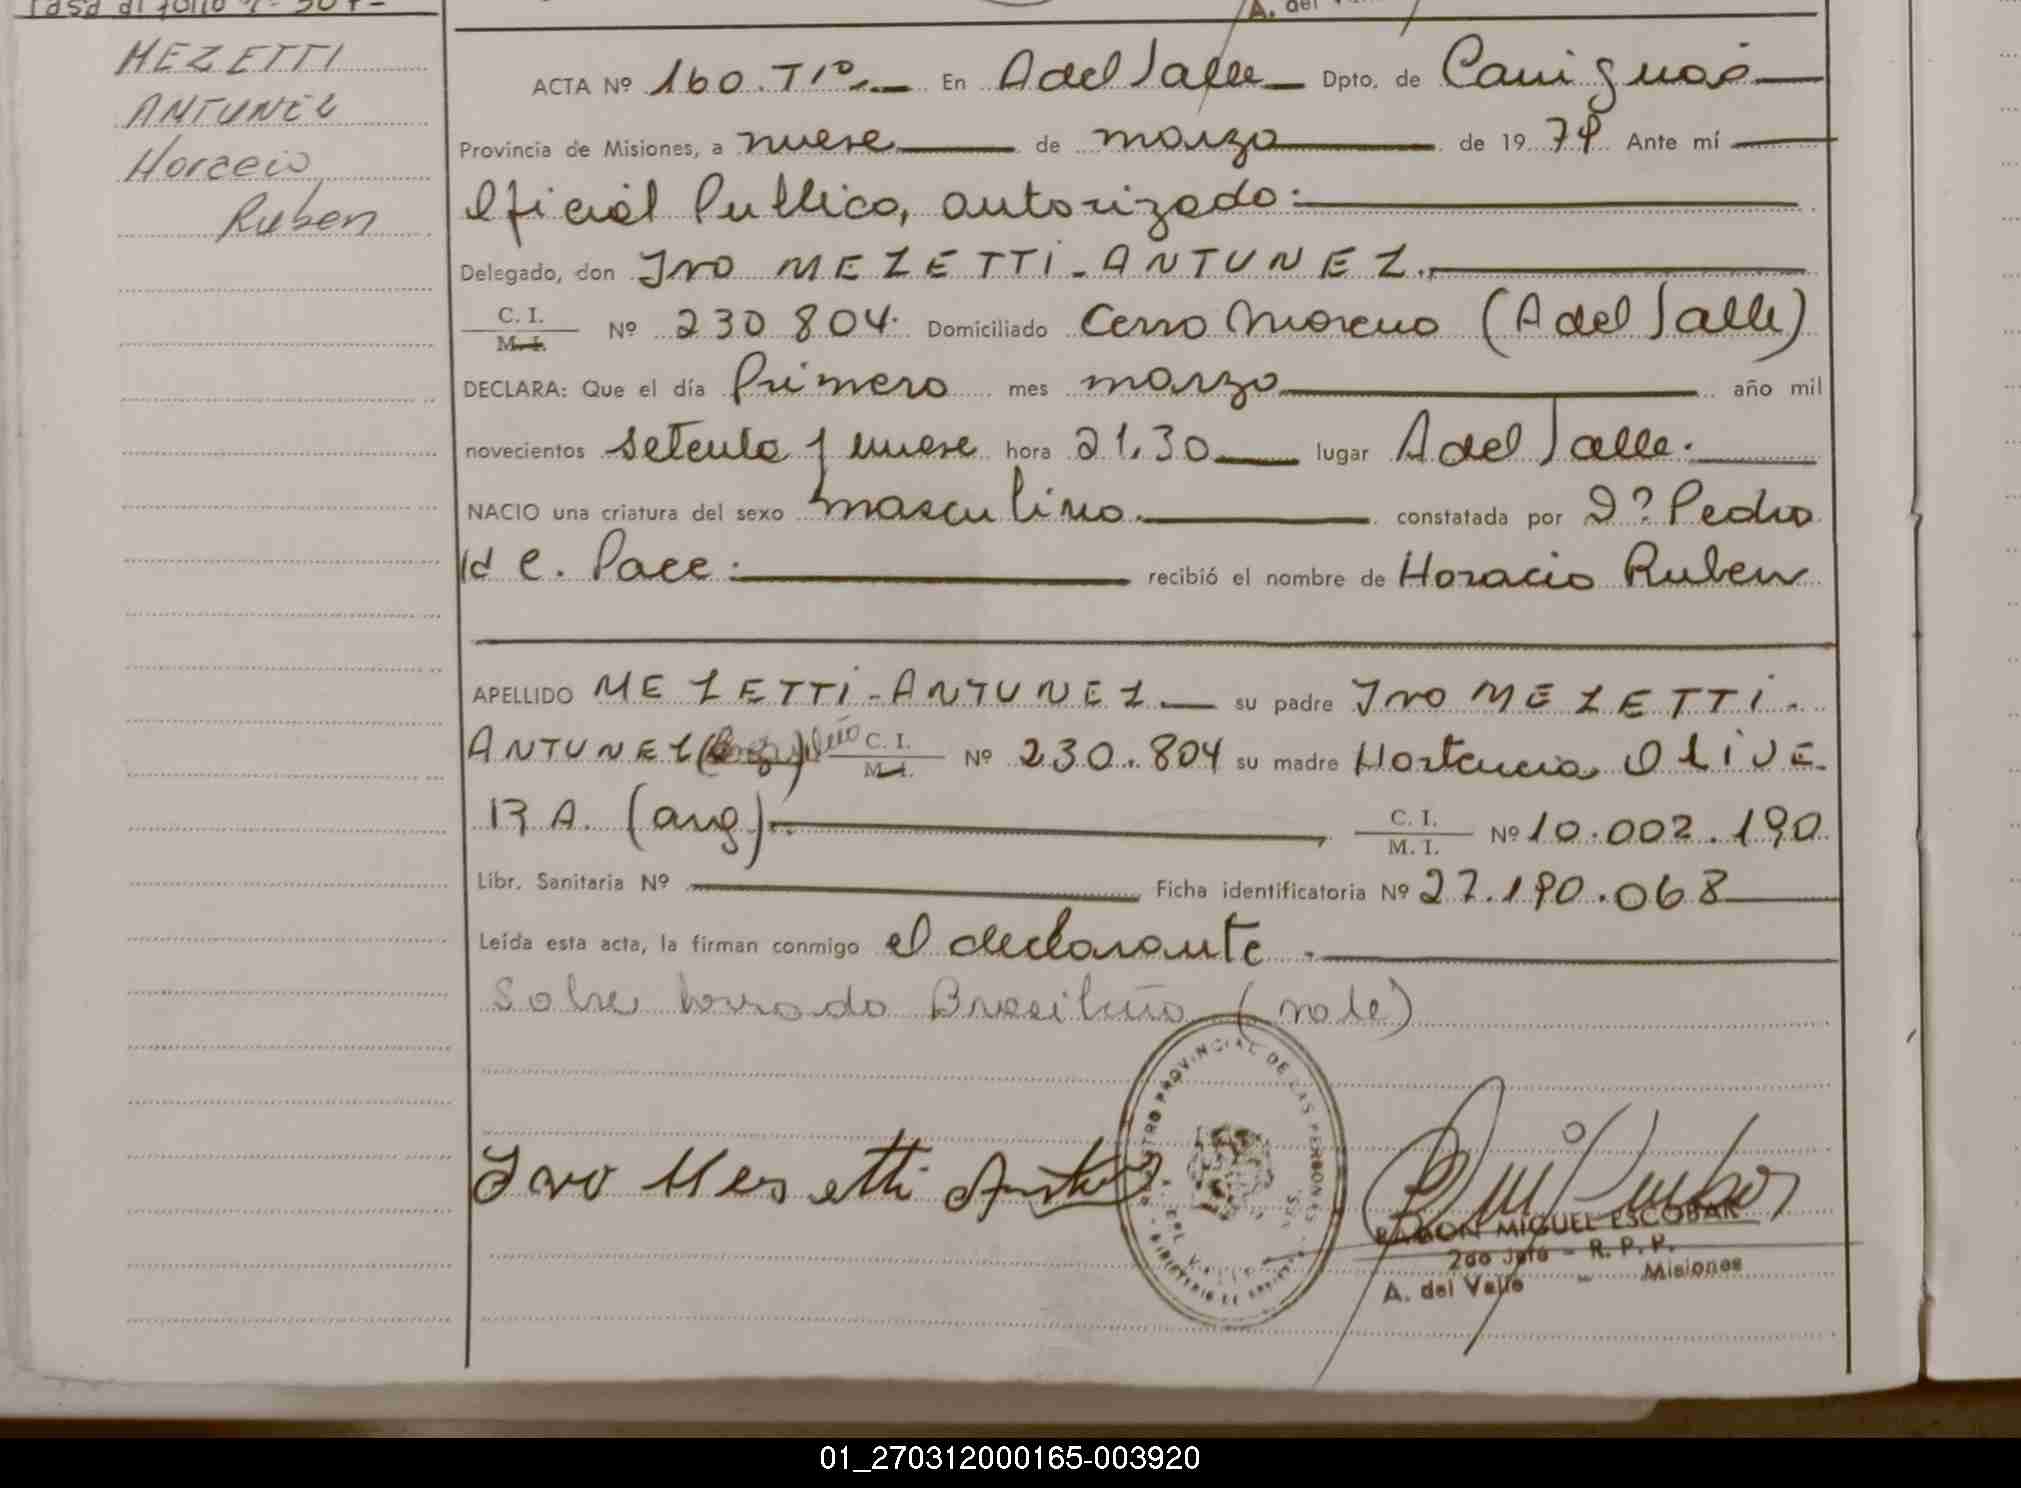 A. del
MEZETTI
ANTUNEZ
Horacio
Ruben
ACTA Nº 160. Tº1º. En A del Valle Dpto. de Cainguás
Provincia de Misiones, a nueve de marzo de 1979 Ante mí
Oficial Publico, autorizado:
Delegado, don Ivo MEZETTI - ANTUNEZ.
C. I.
M. I. Nº 230 804. Domiciliado Cerro Moreno (A del Valle)
DECLARA: Que el día Primero mes marzo año mil
novecientos setenta y nueve hora 21.30 lugar A del Valle.
NACIO una criatura del sexo masculino. constatada por Dº Pedro
C. Pace. recibió el nombre de Horacio Ruben
APELLIDO MEZETTI - ANTUNEZ su padre Ivo MEZETTI -
ANTUNEZ C. I.
M. I. Nº 230.804 su madre Hortencia OLIVE-
RA. (arg) C. I.
M. I. Nº 10.002.190
Libr. Sanitaria Nº Ficha identificatoria Nº 27.190.068
Leída esta acta, la firman conmigo el declarante.
Sobre borrado Brasileño (vale)
Ivo Mesetti
REGISTRO PROVINCIAL DE LAS PERSONAS
RAMON MIGUEL ESCOBAR
2do Jefe - R. P. P.
A. del Valle - Misiones
01_270312000165-003920